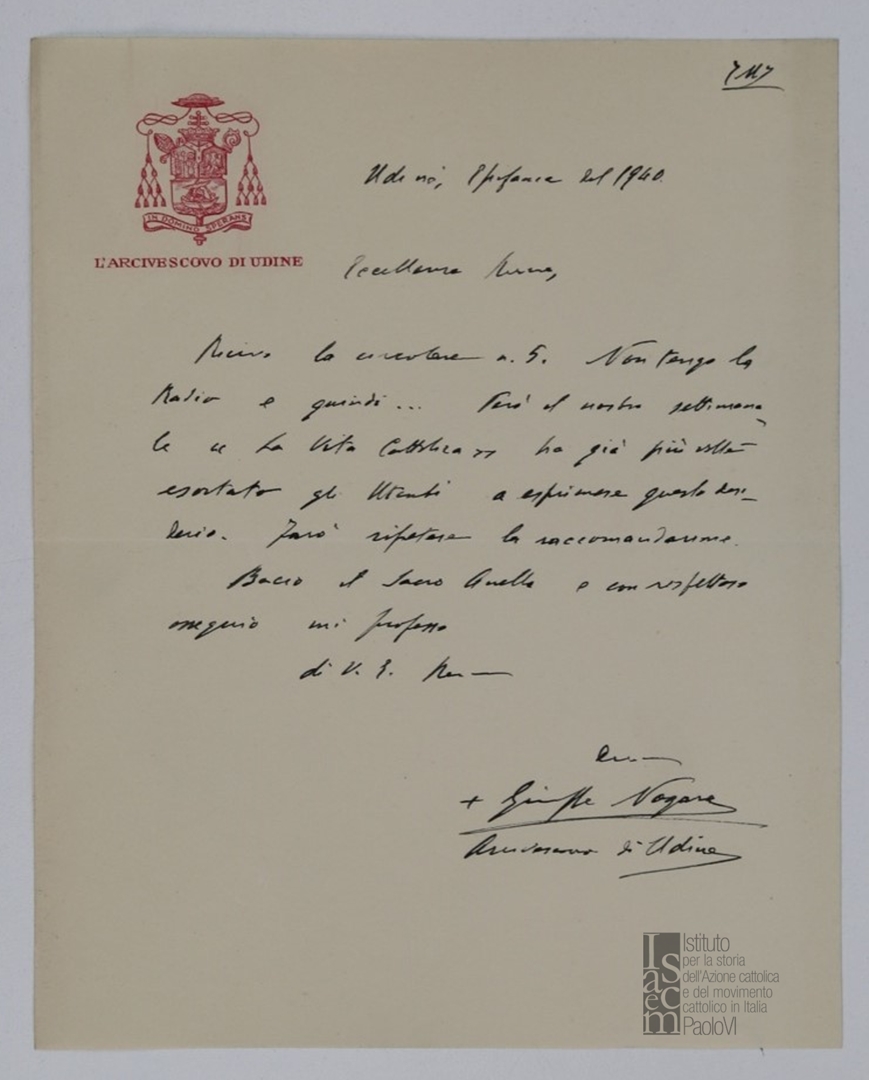 IN DOMINO SPERANS
L'ARCIVESCOVO DI UDINE
Udine, Epifania del 1940.
Eccellenza Rev.ma,
Ricevo la circolare n. 5. Non tengo la
Radio e quindi... Però il nostro settimana-
le "La Vita Cattolica" ha già più volte
esortato gli Utenti a esprimere questo desi-
derio. Farò ripetere la raccomandazione.
Bacio il Sacro Anello e con rispettoso
ossequio mi professo
di V. E. Rev
+ Giuseppe Nogara
Arcivescovo di Udine
Isacem
Istituto
per la storia
dell'Azione cattolica
e del movimento
cattolico in Italia
PaoloVI